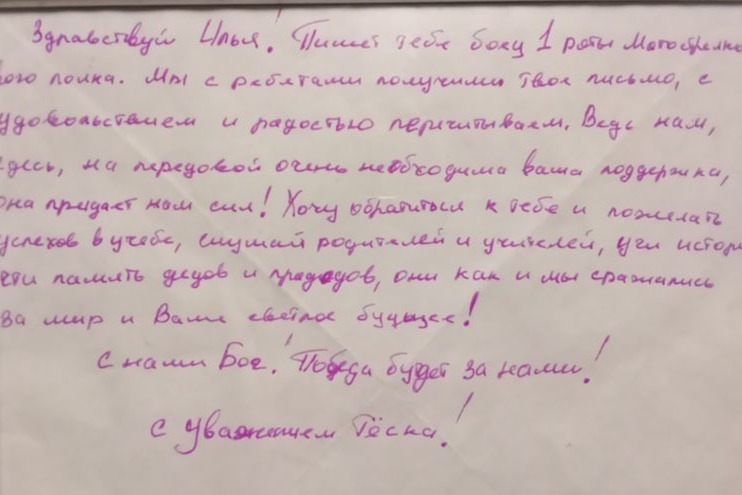 Здравствуй Илья! Пишет тебе боец 1 роты Мотострелко
вого полка. Мы с ребятами получили твое письмо, с
удовольствием и радостью перечитываем. Ведь нам,
здесь, на передовой очень необходима ваша поддержка,
она придает нам сил! Хочу обратиться к тебе и пожелать
успехов в учебе, слушай родителей и учителей, учи истори
чти память дедов и прадедов, они как и мы сражались
за мир и Ваше светлое будущее!
С нами Бог! Победа будет за нами!
С Уважением Тёска!